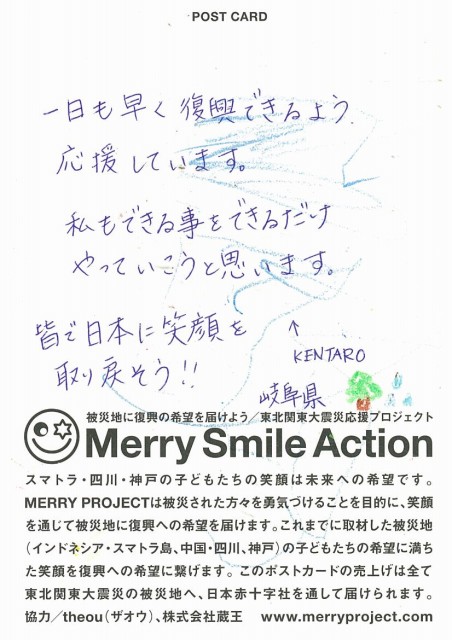 POST CARD
一日も早く復興できるよう
応援しています。
私もできる事をできるだけ
やっていこうと思います。
皆で日本に笑顔を
取り戻そう!!
↑
KENTARO
岐阜県
被災地に復興の希望を届けよう／東北関東大震災応援プロジェクト
Merry Smile Action
スマトラ・四川・神戸の子どもたちの笑顔は未来への希望です。
MERRY PROJECTは被災された方々を勇気づけることを目的に、笑顔
を通じて被災地に復興への希望を届けます。これまでに取材した被災地
（インドネシア・スマトラ島、中国・四川、神戸）の子どもたちの希望に満ち
た笑顔を復興への希望に繋げます。このポストカードの売上げは全て
東北関東大震災の被災地へ、日本赤十字社を通して届けられます。
協力／theou（ザオウ）、株式会社蔵王 www.merryproject.com